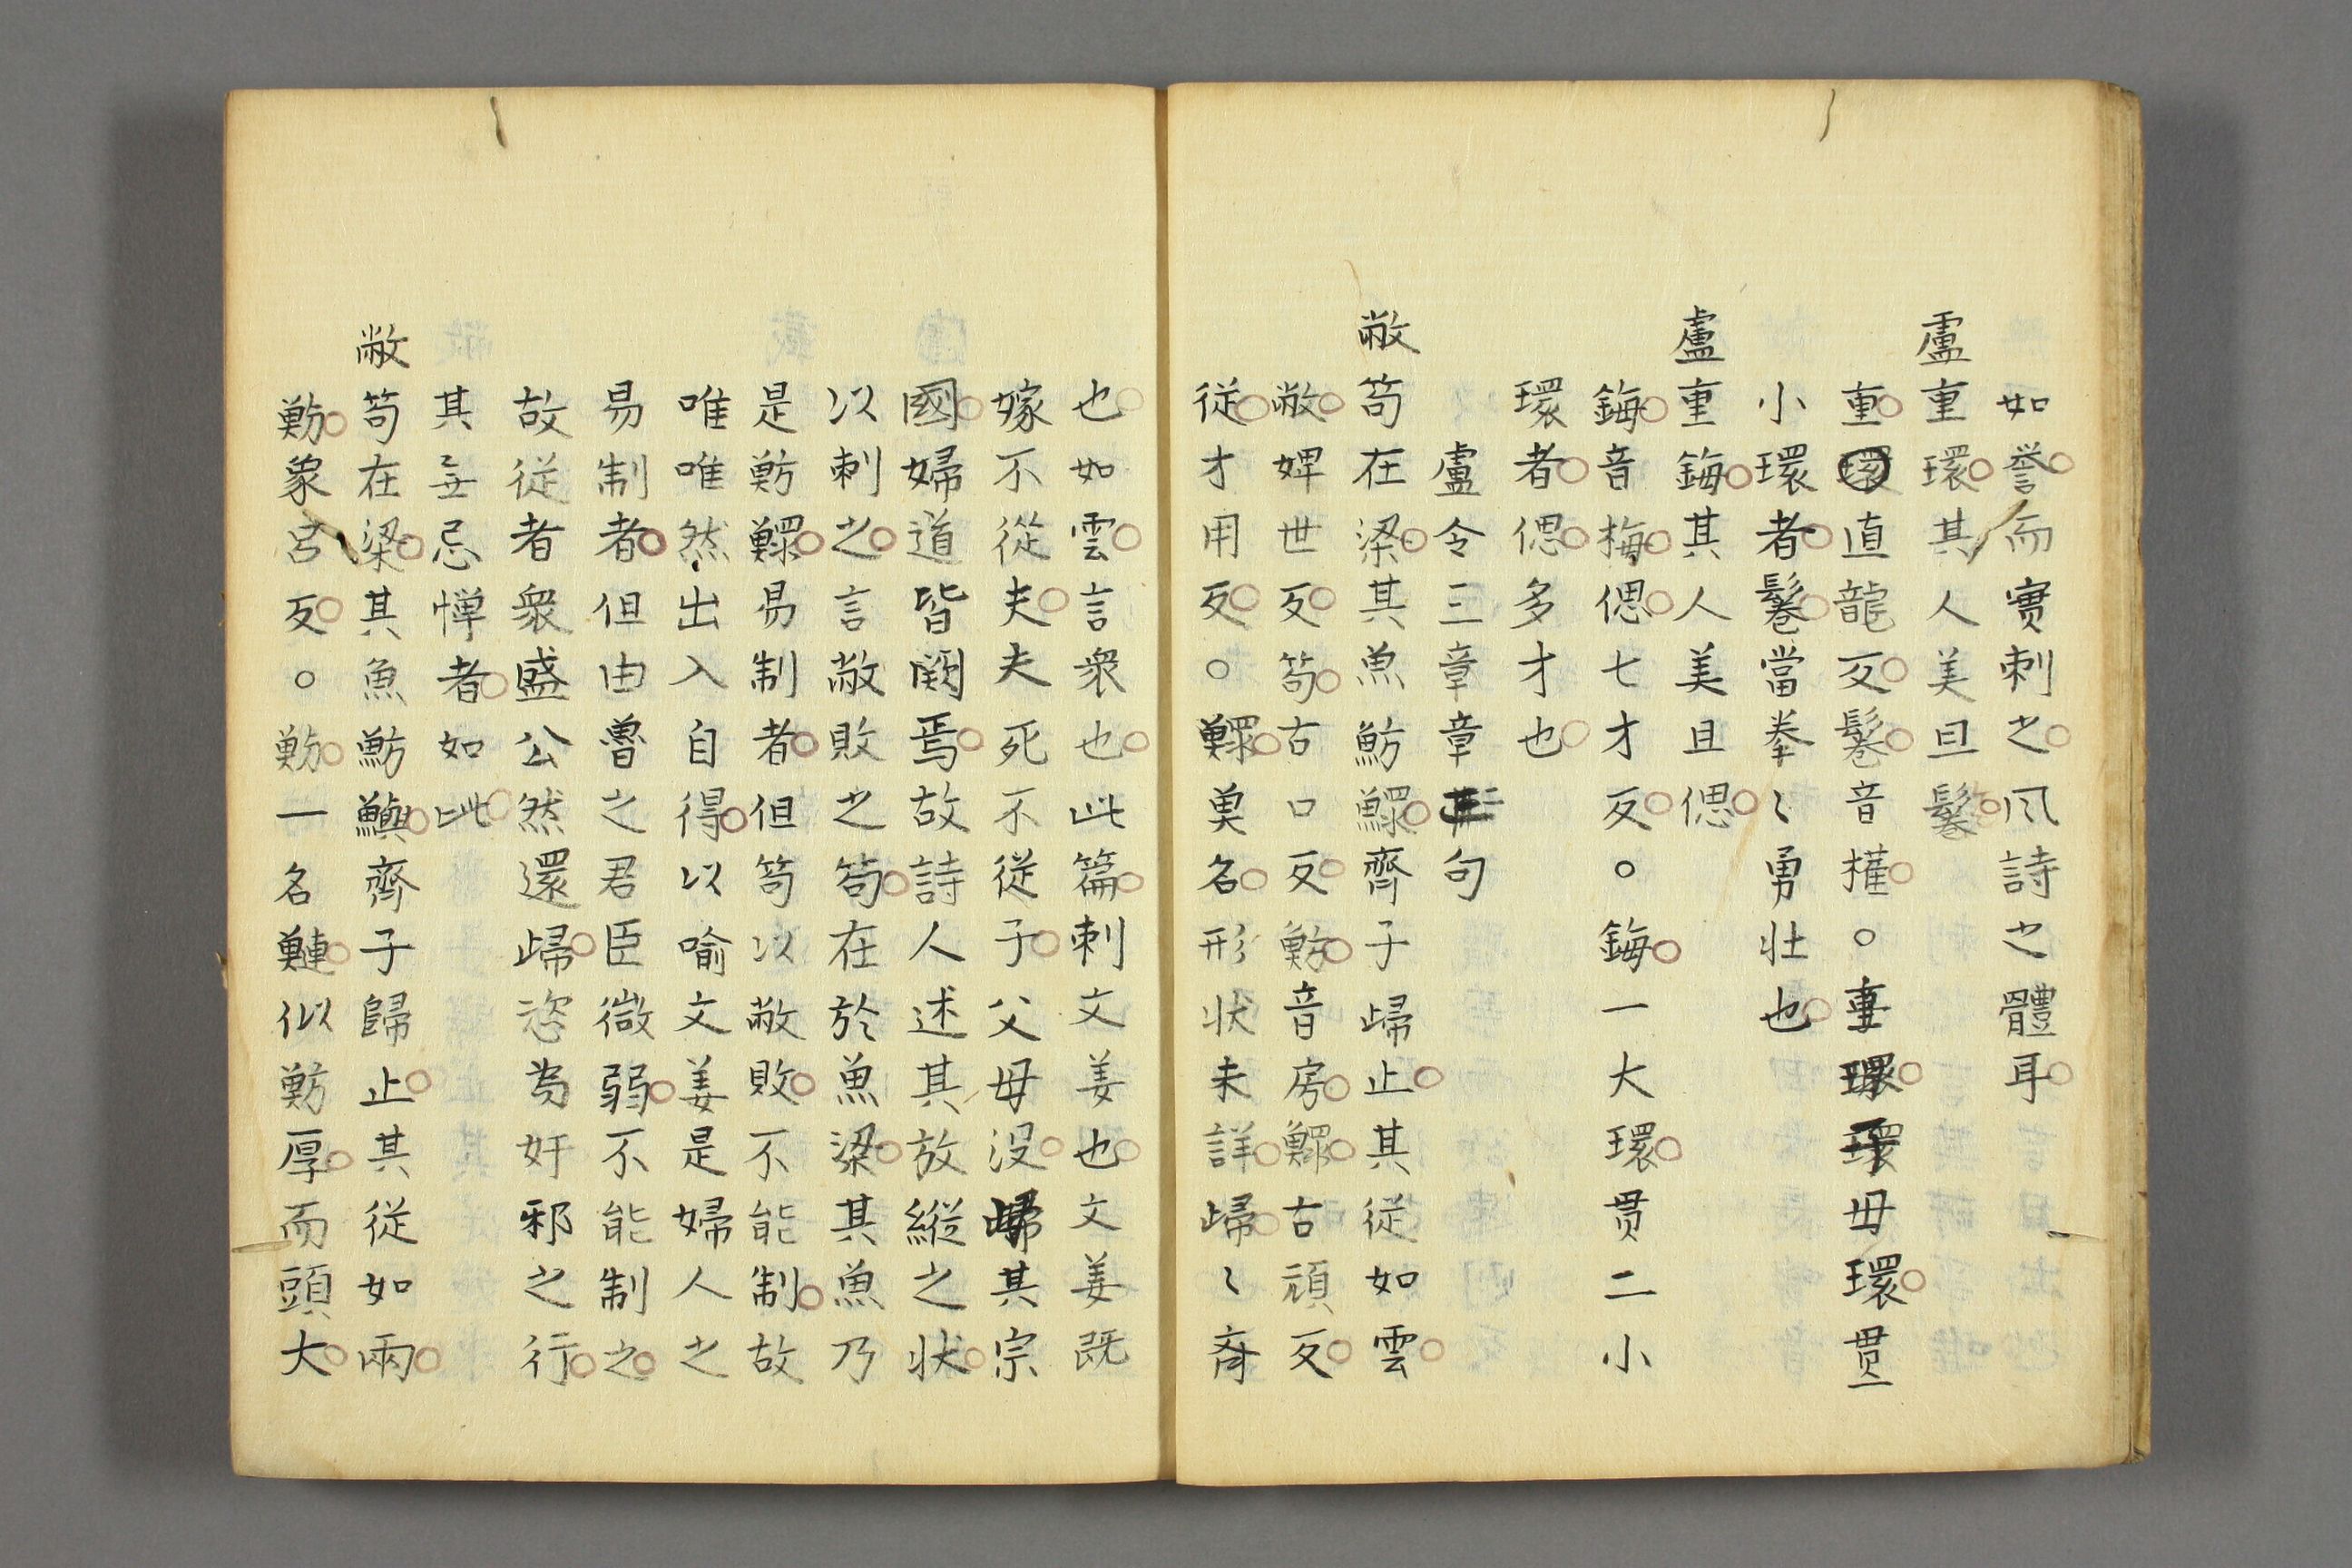 如誉而實刺之风詩之體耳
盧重環其人美且鬈
重環直龍反鬈音權。重環環毋環贯一
小環者鬈當拳〻勇壮也
盧重鋂其人美且偲
鋂音梅偲七才反。鋂一大環贯二小
環者偲多才也
盧令三章章二句
敝笱在梁其魚魴鰥齊子歸止其從如雲
敝婢世反笱古口反魴音房鰥古頑反
從才用反。鰥奠名形状未詳歸〻齊
也如雲言衆也此篇刺文姜也文姜既
嫁不從夫夫死不從子父母没歸其宗
國婦道皆闕焉故詩人述其放縱之状
以刺之言敝敗之笱在於魚梁其魚乃
是魴鰥易制者但笱以敝敗不能制故
唯唯然出入自得以喻文姜是婦人之
易制者但由魯之君臣微弱不能制之
故從者衆盛公然還歸恣為奸邪之行
其無忌憚者如此
敝笱在梁其魚魴鱮齊子歸止其從如兩
魴象呂反。魴一名鰱似魴厚而頭大